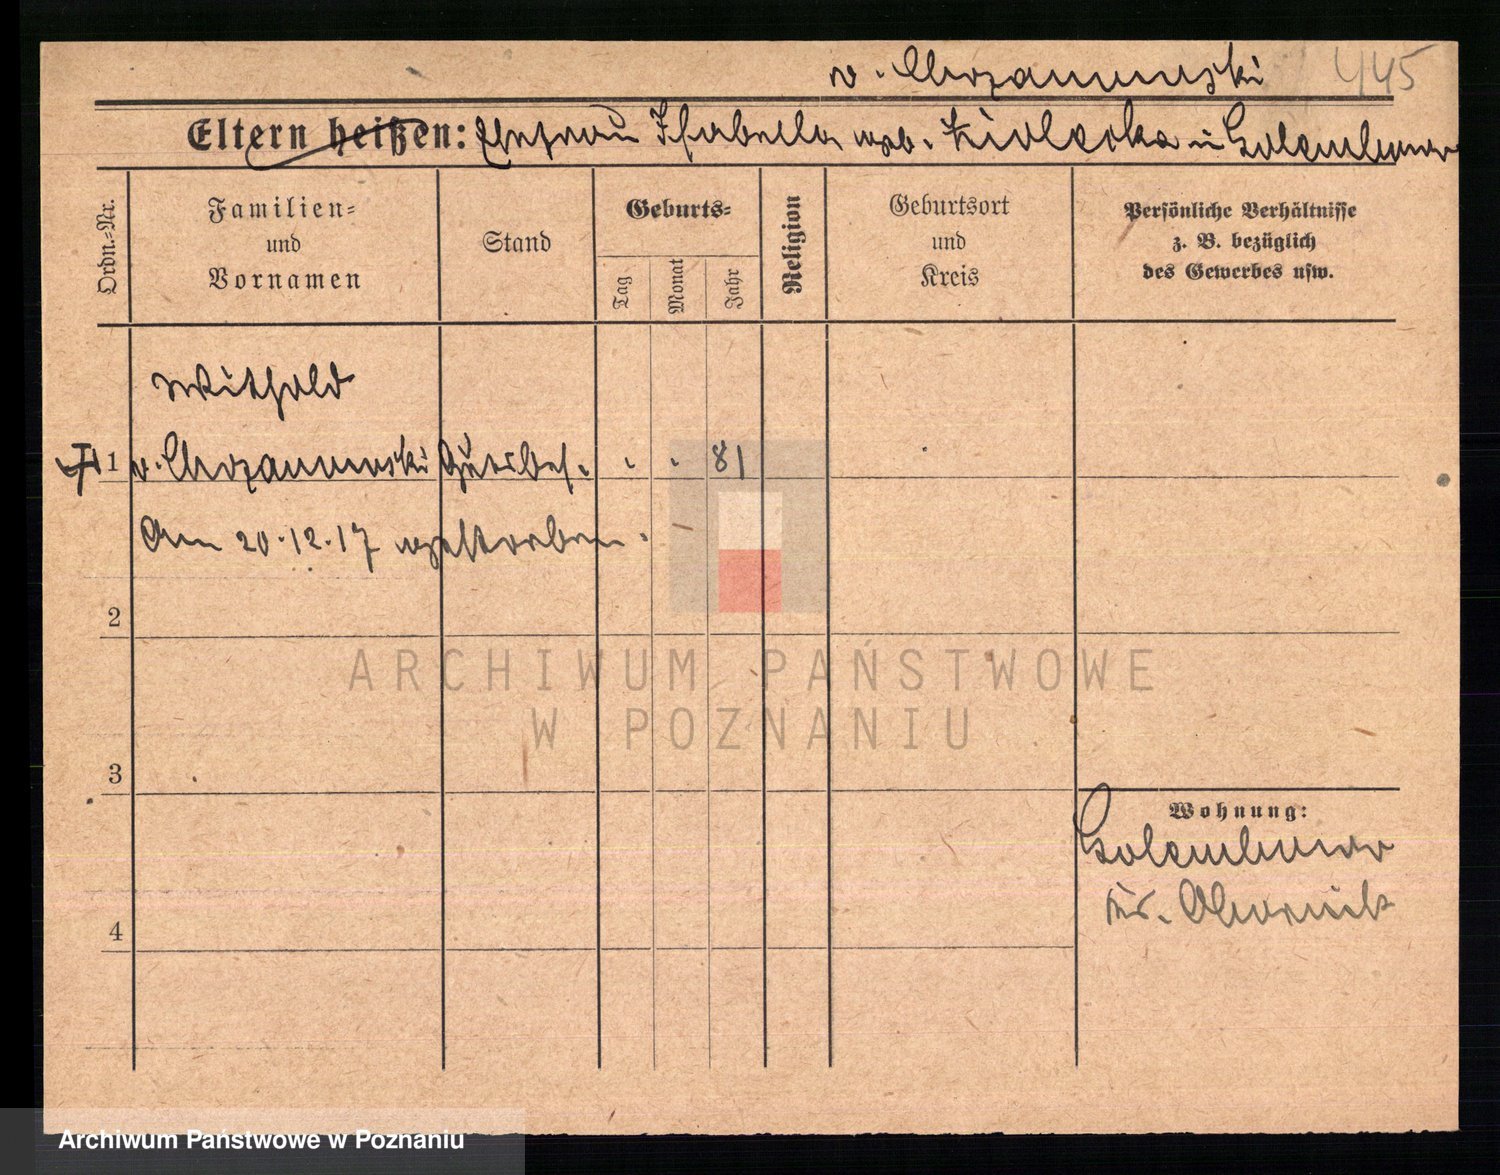 v. Chrzanowski 445
Eltern heißen: Ehefrau Isabella geb. Ziolecka in Golembowo
Ordn.=Nr.
Familien=
und
Vornamen
Stand
Geburts=
Tag
Monat
Jahr
Religion
Geburtsort
und
Kreis
Persönliche Verhältnisse
z. B. bezüglich
des Gewerbes usw.
Withold
1 v. Chrzanowski Gutsbes. . . 81
Am 20.12.17 gestorben.
2
3
4
Wohnung:
Golembowo
Kr. Obornik
ARCHIWUM PAŃSTWOWE
W POZNANIU
Archiwum Państwowe w Poznaniu